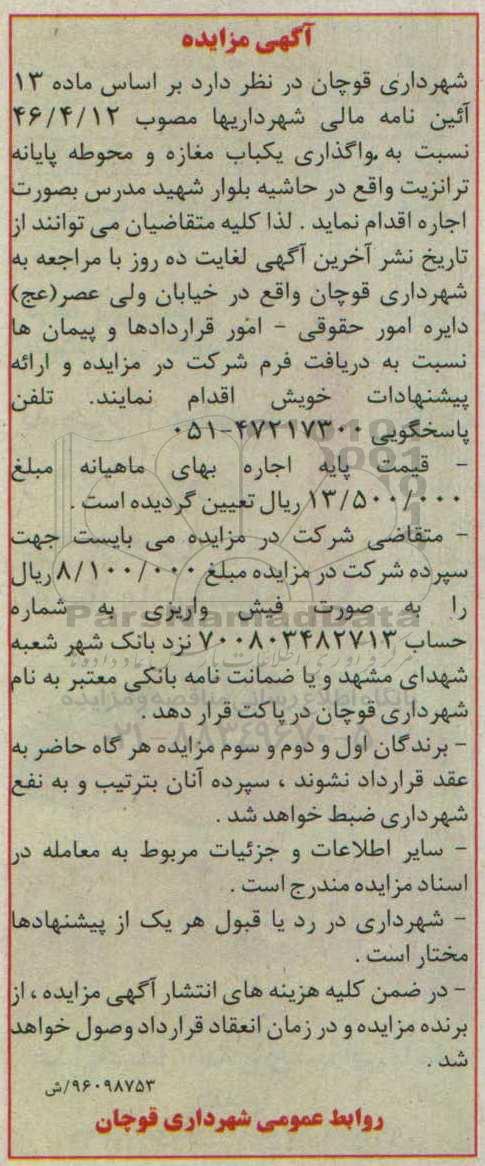 آگهی مزایده
شهرداری قوچان در نظر دارد بر اساس ماده ۱۳
آئین نامه مالی شهرداریها مصوب ۴۶/۴/۱۲
نسبت به واگذاری یکباب مغازه و محوطه پایانه
ترانزیت واقع در حاشیه بلوار شهید مدرس بصورت
اجاره اقدام نماید . لذا کلیه متقاضیان می توانند از
تاریخ نشر آخرین آگهی لغایت ده روز با مراجعه به
شهرداری قوچان واقع در خیابان ولی عصر(عج)
دایره امور حقوقی - امور قراردادها و پیمان ها
نسبت به دریافت فرم شرکت در مزایده و ارائه
پیشنهادات خویش اقدام نمایند. تلفن
پاسخگویی ۴۷۲۱۷۳۰۰-۰۵۱
- قیمت پایه اجاره بهای ماهیانه مبلغ
۱۳/۵۰۰/۰۰۰ ریال تعیین گردیده است .
- متقاضی شرکت در مزایده می بایست جهت
سپرده شرکت در مزایده مبلغ ۸/۱۰۰/۰۰۰ ریال
را به صورت فیش واریزی به شماره
حساب ۷۰۰۸۰۳۴۸۲۷۱۳ نزد بانک شهر شعبه
شهدای مشهد و یا ضمانت نامه بانکی معتبر به نام
شهرداری قوچان در پاکت قرار دهد .
- برندگان اول و دوم و سوم مزایده هر گاه حاضر به
عقد قرارداد نشوند ، سپرده آنان بترتیب و به نفع
شهرداری ضبط خواهد شد .
- سایر اطلاعات و جزئیات مربوط به معامله در
اسناد مزایده مندرج است .
- شهرداری در رد یا قبول هر یک از پیشنهادها
مختار است .
- در ضمن کلیه هزینه های انتشار آگهی مزایده ، از
برنده مزایده و در زمان انعقاد قرارداد وصول خواهد
شد .
۹۶۰۹۸۷۵۳/ش
روابط عمومی شهرداری قوچان
ParsNamadData